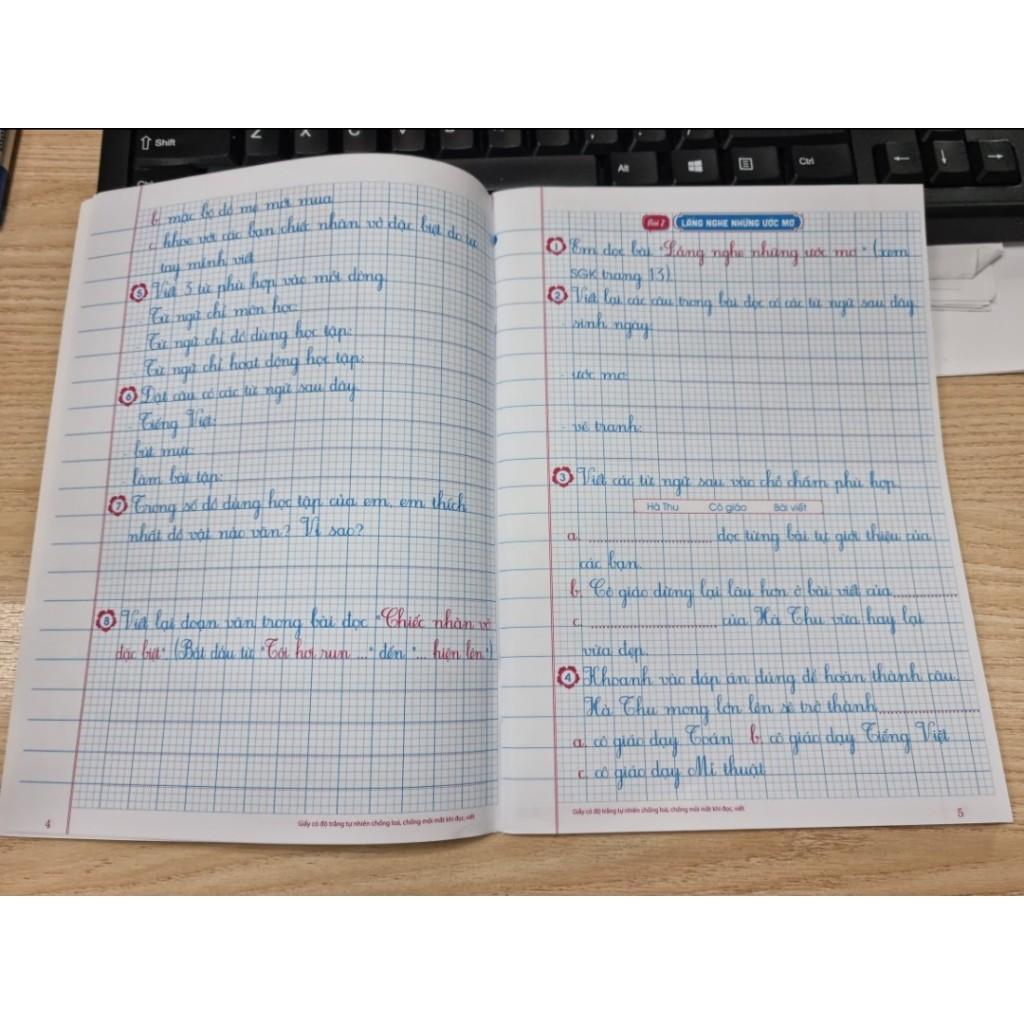 Shift
Z X C V B
Alt
Ctrl
b. mặc bộ đồ mẹ mới mua
c. khoe với các bạn chiếc nhãn vở đặc biệt do tự
tay mình viết
5 Viết 3 từ phù hợp vào mỗi dòng.
- Từ ngữ chỉ môn học:
- Từ ngữ chỉ đồ dùng học tập:
- Từ ngữ chỉ hoạt động học tập:
6 Đặt câu có các từ ngữ sau đây.
- Tiếng Việt:
- bút mực:
- làm bài tập:
7 Trong số đồ dùng học tập của em, em thích
nhất đồ vật nào vân? Vì sao?
8 Viết lại đoạn văn trong bài đọc "Chiếc nhãn vở
đặc biệt" (Bắt đầu từ "Tôi hơi run ..." đến "... hiện lên")
4
Giấy có độ trắng tự nhiên chống loá, chống mỏi mắt khi đọc, viết
Bài 2 LẮNG NGHE NHỮNG ƯỚC MƠ
1 Em đọc bài "Lắng nghe những ước mơ" (xem
SGK trang 13).
2 Viết lại các câu trong bài đọc có các từ ngữ sau đây
- sinh ngày:
- ước mơ:
- vẽ tranh:
3 Viết các từ ngữ sau vào chỗ chấm phù hợp.
Hà Thu Cô giáo Bài viết
a. .................... đọc từng bài tự giới thiệu của
các bạn.
b. Cô giáo dừng lại lâu hơn ở bài viết của............
c. .................... của Hà Thu vừa hay lại
vừa đẹp.
4 Khoanh vào đáp án đúng để hoàn thành câu.
Hà Thu mong lớn lên sẽ trở thành....................
a. cô giáo dạy Toán b. cô giáo dạy Tiếng Việt
c. cô giáo dạy Mĩ thuật
Giấy có độ trắng tự nhiên chống loá, chống mỏi mắt khi đọc, viết
5